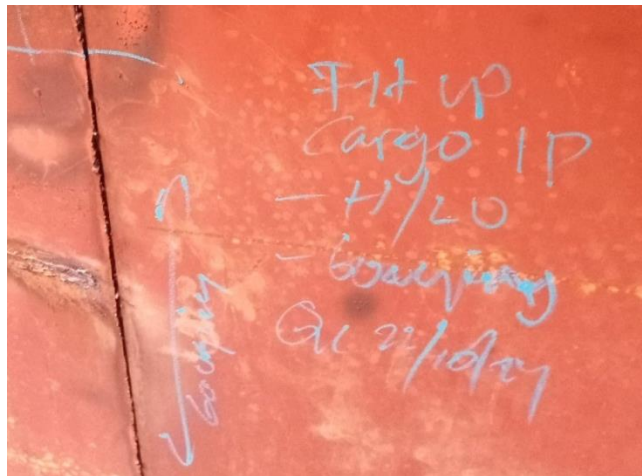 Fit up
Cargo 1P
- H/LO
- Gouging
QC 22/10/24
Gouging